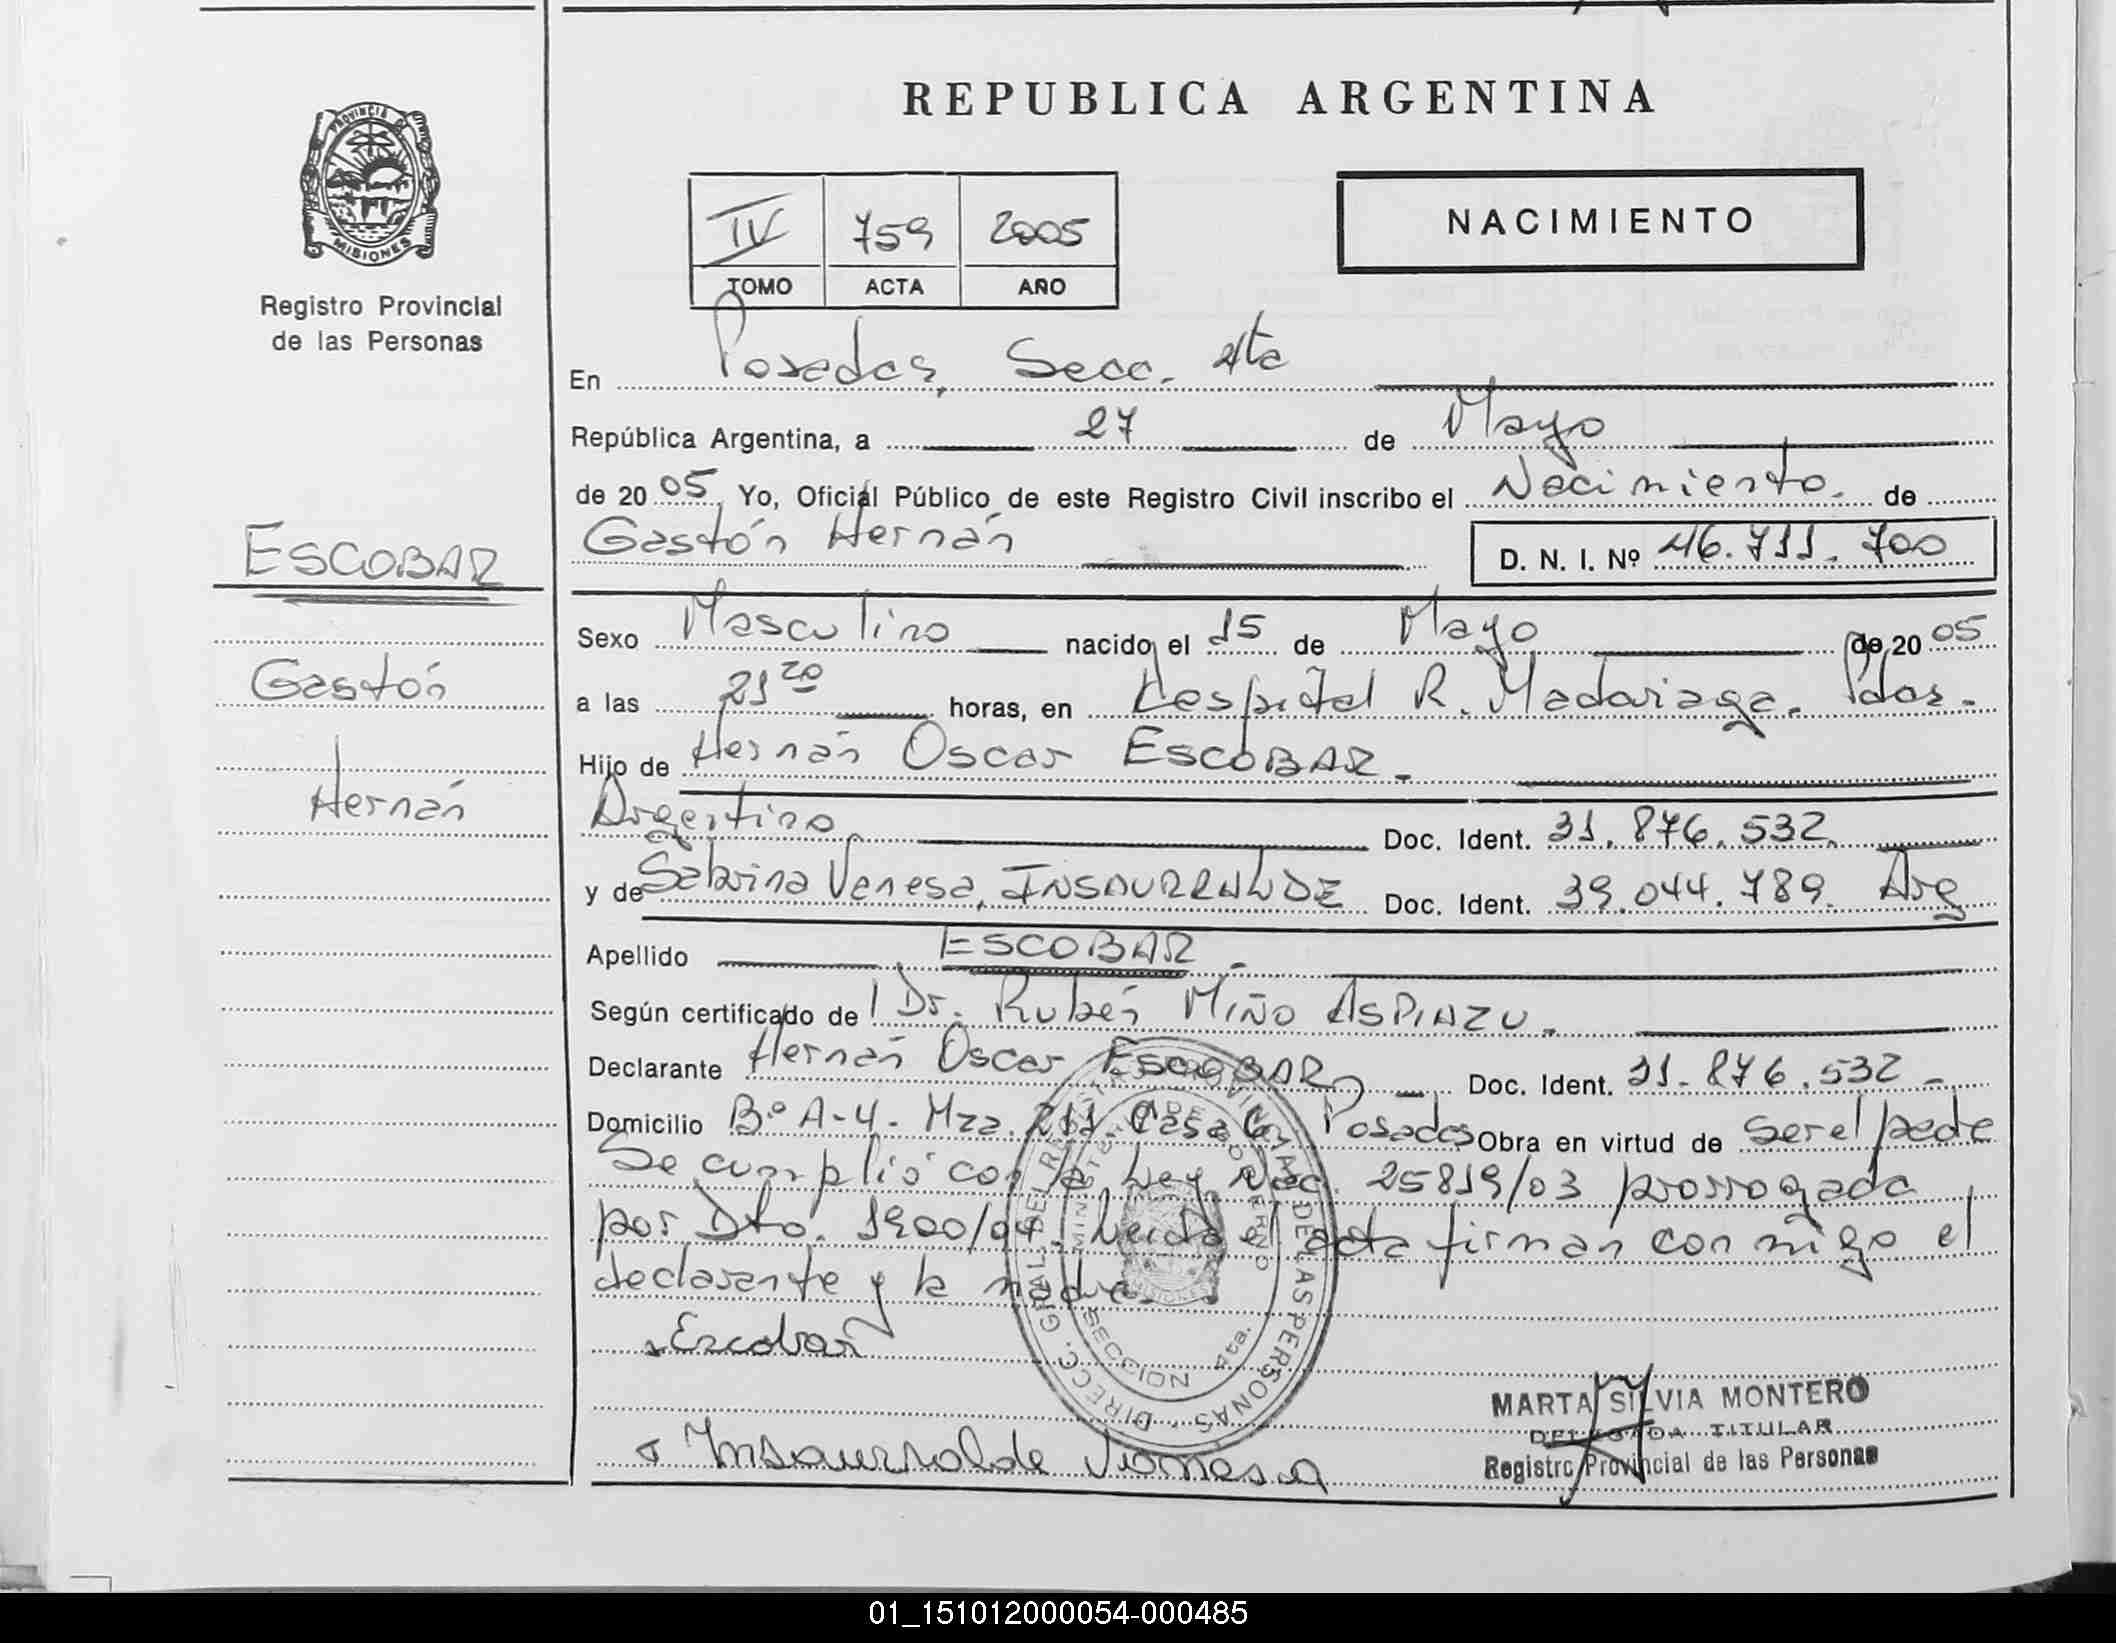 REPUBLICA ARGENTINA
PROVINCIA DE MISIONES
Registro Provincial
de las Personas
IV 759 2005
TOMO ACTA AÑO
NACIMIENTO
En Posadas, Secc. 4ta
República Argentina, a 27 de Mayo
de 20 05, Yo, Oficiál Público de este Registro Civil inscribo el Nacimiento. de
ESCOBAR
Gastón Hernán D. N. I. Nº 46.711.700
Sexo Masculino nacido el 15 de Mayo de 20 05
Gastón
a las 21 20 horas, en Hospital R. Madariaga. Pdas.
Hijo de Hernán Oscar ESCOBAR.
Hernán
Argentino Doc. Ident. 31.876.532.
y de Sabrina Vanesa, INSAURRALDE Doc. Ident. 39.044.789. Arg
Apellido ESCOBAR.
Según certificado de Dr. Rubén MIÑO ASPIAZU.
Declarante Hernán Oscar ESCOBAR Doc. Ident. 31.876.532.
Domicilio Bº A-4. Mza. 211. Casa 6. Posadas Obra en virtud de ser el padre
Se cumplió con la Ley Nac. 25819/03 prorrogada
por Dto. 1900/04. Leida el acta firman conmigo el
declarante y la madre.
Escobar
DIRECC. GRAL. DEL REGISTRO PROVINCIAL DE LAS PERSONAS
MINISTERIO DE GOBIERNO
MISIONES
SECCION 4ta.
Insaurralde Vanesa
MARTA SILVIA MONTERO
DELEGADA TITULAR
Registro Provincial de las Personas
01_151012000054-000485